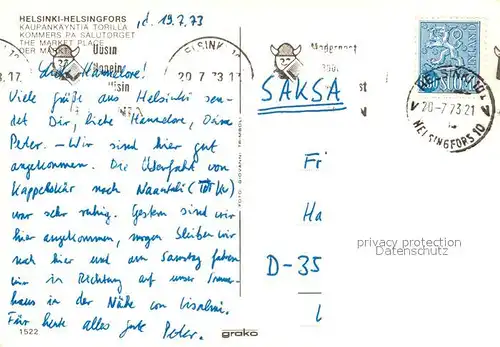 HELSINKI-HELSINGFORS
KAUPANKÄYNTIÄ TORILLA
KOMMERS PÅ SALUTORGET
THE MARKET PLACE
DER MA
, d. 19.7.73
Liebe Hannelore!
Viele Grüße aus Helsinki sen-
det Dir, liebe Hannelore, Deine
Peter. – Wir sind hier gut
angekommen. Die Überfahrt von
Kappelskär nach Naantali
war sehr ruhig. Gestern sind wir
hier angekommen, morgen bleiben wir
noch hier und am Samstag fahren
wir in Richtung auf unser
haus in der Nähe von Iisalmi.
Für heute alles gute Peter.
1522
grako
FOTO: GIOVANNI TRIMBOLI
8.17
ELSINKI 10
20-7 73.17
HELSINKI 10
20-7 73.21
HELSINGFORS 10
SUOMI
SAKSA
Fr
Ha
D-35
privacy protection
Datenschutz